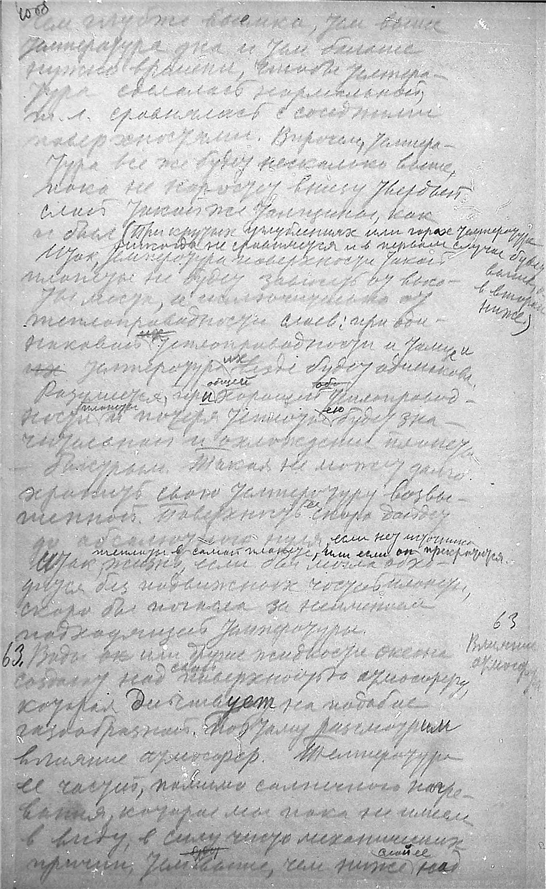 чем глубже выемка, тем выше
температура дна и тем больше
нужно времени, чтобы темпера-
тура сделалась нормальной,
т. е. сравнялась с соседними
поверхностями. Впрочем, темпера-
тура все же будет несколько выше,
пока не нарастет внизу твердый
слой такой же толщины, как
и был (При крутых углублениях или горах температура
никогда не сравняется и в первом случае будет
выше, а
в втором
ниже)
Итак, температура поверхности такой
планеты не будет зависеть от высо-
ты места, а исключительно от
теплопроводности слоев: при оди-
наковой теплопроводности и толще
их температура везде будет одинакова.
Разумеется, при хорошей общей теплопровод-
ности планеты и потеря теплоты ею будет зна-
чительной и охлаждение планеты
– быстрым. Такая не может долго
хранить свою температуру возвы-
шенной. Поверхность ее скоро дойдет
до абсолютного нуля, если нет источника
теплоты в самой планете, или если он прекратился.
Итак, жизнь, если бы и могла обхо-
диться без подвижных частей планеты,
скоро бы погасла за неимением
подходящей температуры.
63
Влияние
атмосферы
63. Воды ок или другие жидкости океана
создают над своей поверхностью атмосферу,
которая действует на подобие
газообразной. Поэтому рассмотрим
влияние атмосфер. Температура
ее частей, помимо солнечного нагре-
вания, которое мы пока не имеем
в виду, в силу чисто механических
причин, тем выше, чем ниже слой ее